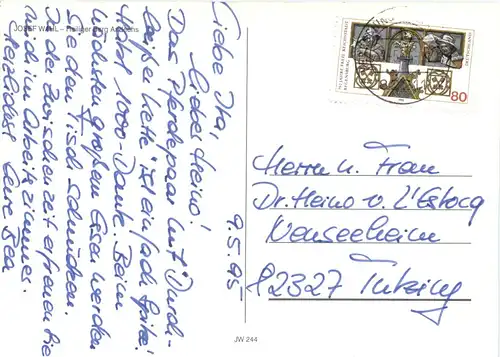 JOSEF WAHL - Heiliger Berg Andechs
9.5.95
Liebe Ika,
Lieber Heino!
Das Pferdepaar mit "Durch-
beißer kette" ist einfach Spitze!
Habt 1000-Dank. Beim
nächsten großen Essen werden
Sie den Tisch schmücken.
In der Zwischenzeit erfreuen Sie
mich im Arbeitszimmer.
Herzlichst Eure Bea
80
Herrn u. Frau
Dr. Heino v. L'Estocq
Neuseeheim
82327 Tutzing
JW 244